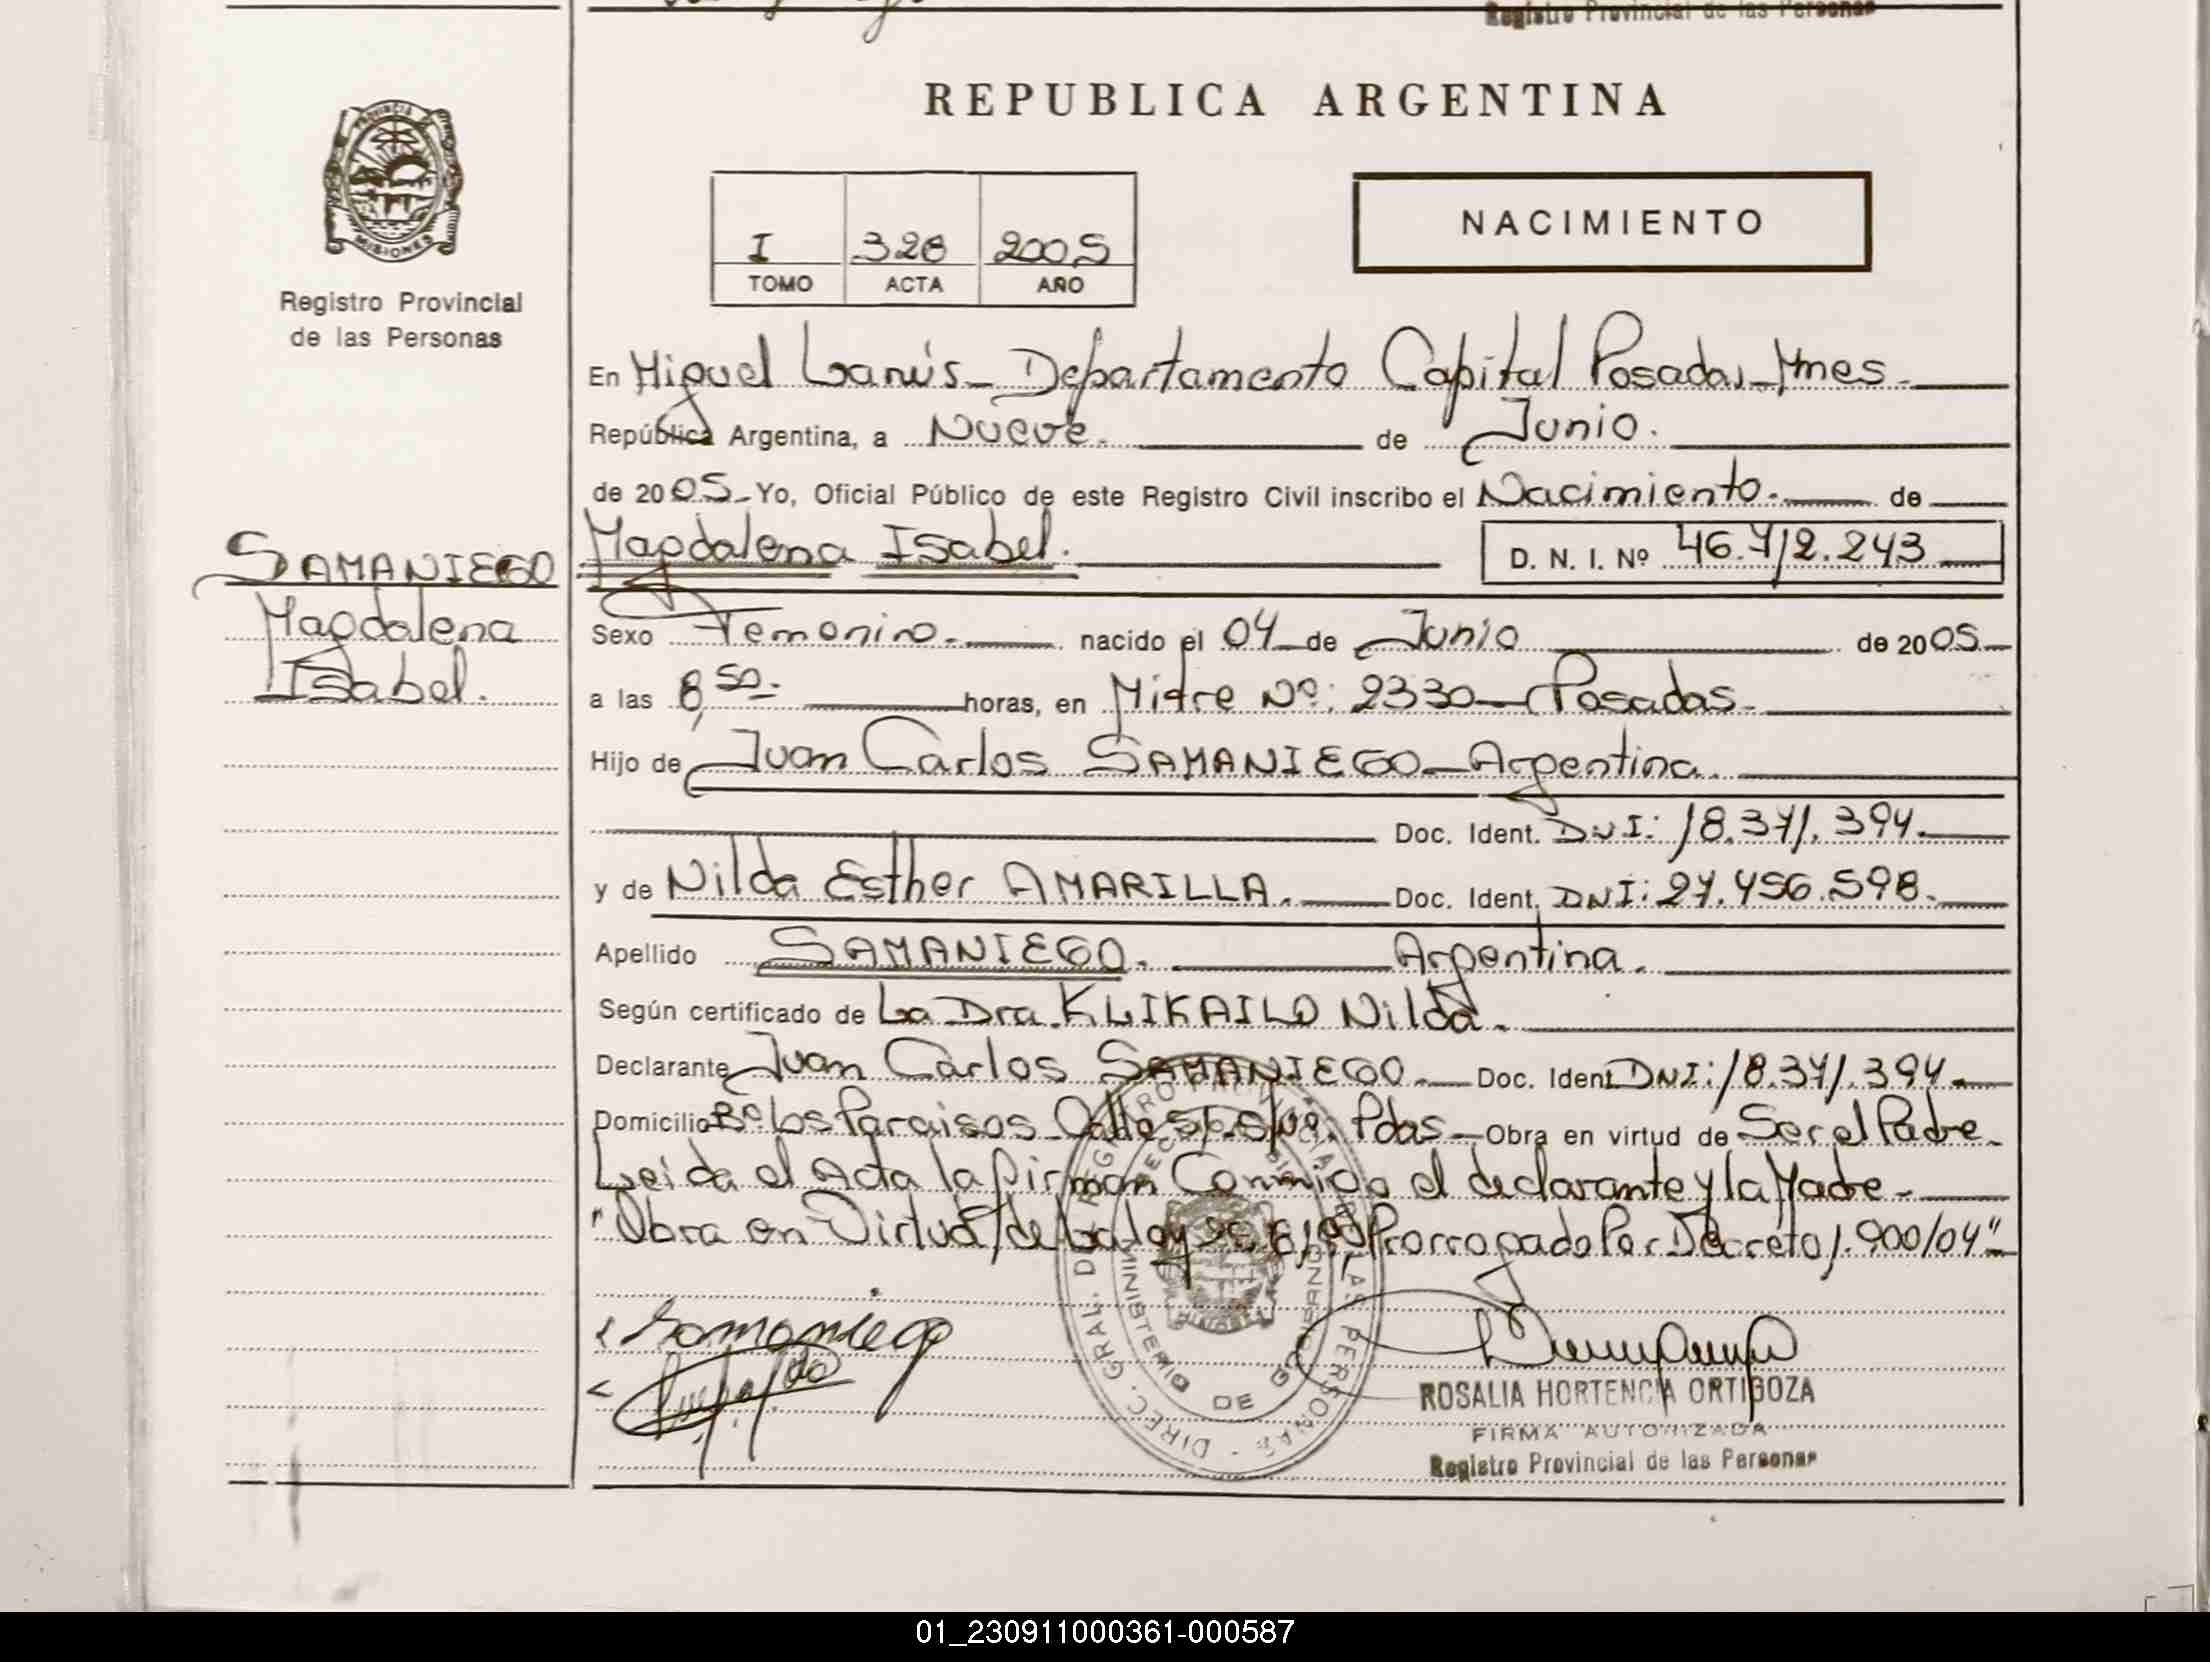 Registro Provincial de las Personas
PROVINCIA DE
MISIONES
Registro Provincial
de las Personas
REPUBLICA ARGENTINA
I 328 2005
TOMO ACTA AÑO
NACIMIENTO
En Miguel Lanús_ Departamento Capital Posadas_Mnes.
República Argentina, a Nueve. de Junio.
de 2005_Yo, Oficial Público de este Registro Civil inscribo el Nacimiento. de
SAMANIEGO
Magdalena
Isabel.
Magdalena Isabel. D. N. I. Nº 46.712.243
Sexo Femenino. nacido el 04 de Junio de 2005
a las 8,50. horas, en Mitre Nº: 2330 Posadas.
Hijo de Juan Carlos SAMANIEGO_Argentina.
Doc. Ident. DNI: 18.371.394.
y de Nilda Esther AMARILLA. Doc. Ident. DNI: 27.456.598.
Apellido SAMANIEGO. Argentina.
Según certificado de La Dra. KLIKAILO Nilda.
Declarante Juan Carlos SAMANIEGO. Doc. Ident DNI: 18.371.394.
Domicilio Bº Los Paraisos_Calle s/. Pdas_Obra en virtud de Ser el Padre.
Leida el Acta la firman Conmigo el declarante y la Madre.
"Obra en Virtud de La Ley Prorrogado Por Decreto 1.900/04"
Samaniego
DIREC. GRAL. DE REGISTRO PROVINCIAL DE LAS PERSONAS
MINISTERIO DE GOBIERNO
ROSALIA HORTENCIA ORTIGOZA
FIRMA AUTORIZADA
Registro Provincial de las Personas
01_230911000361-000587